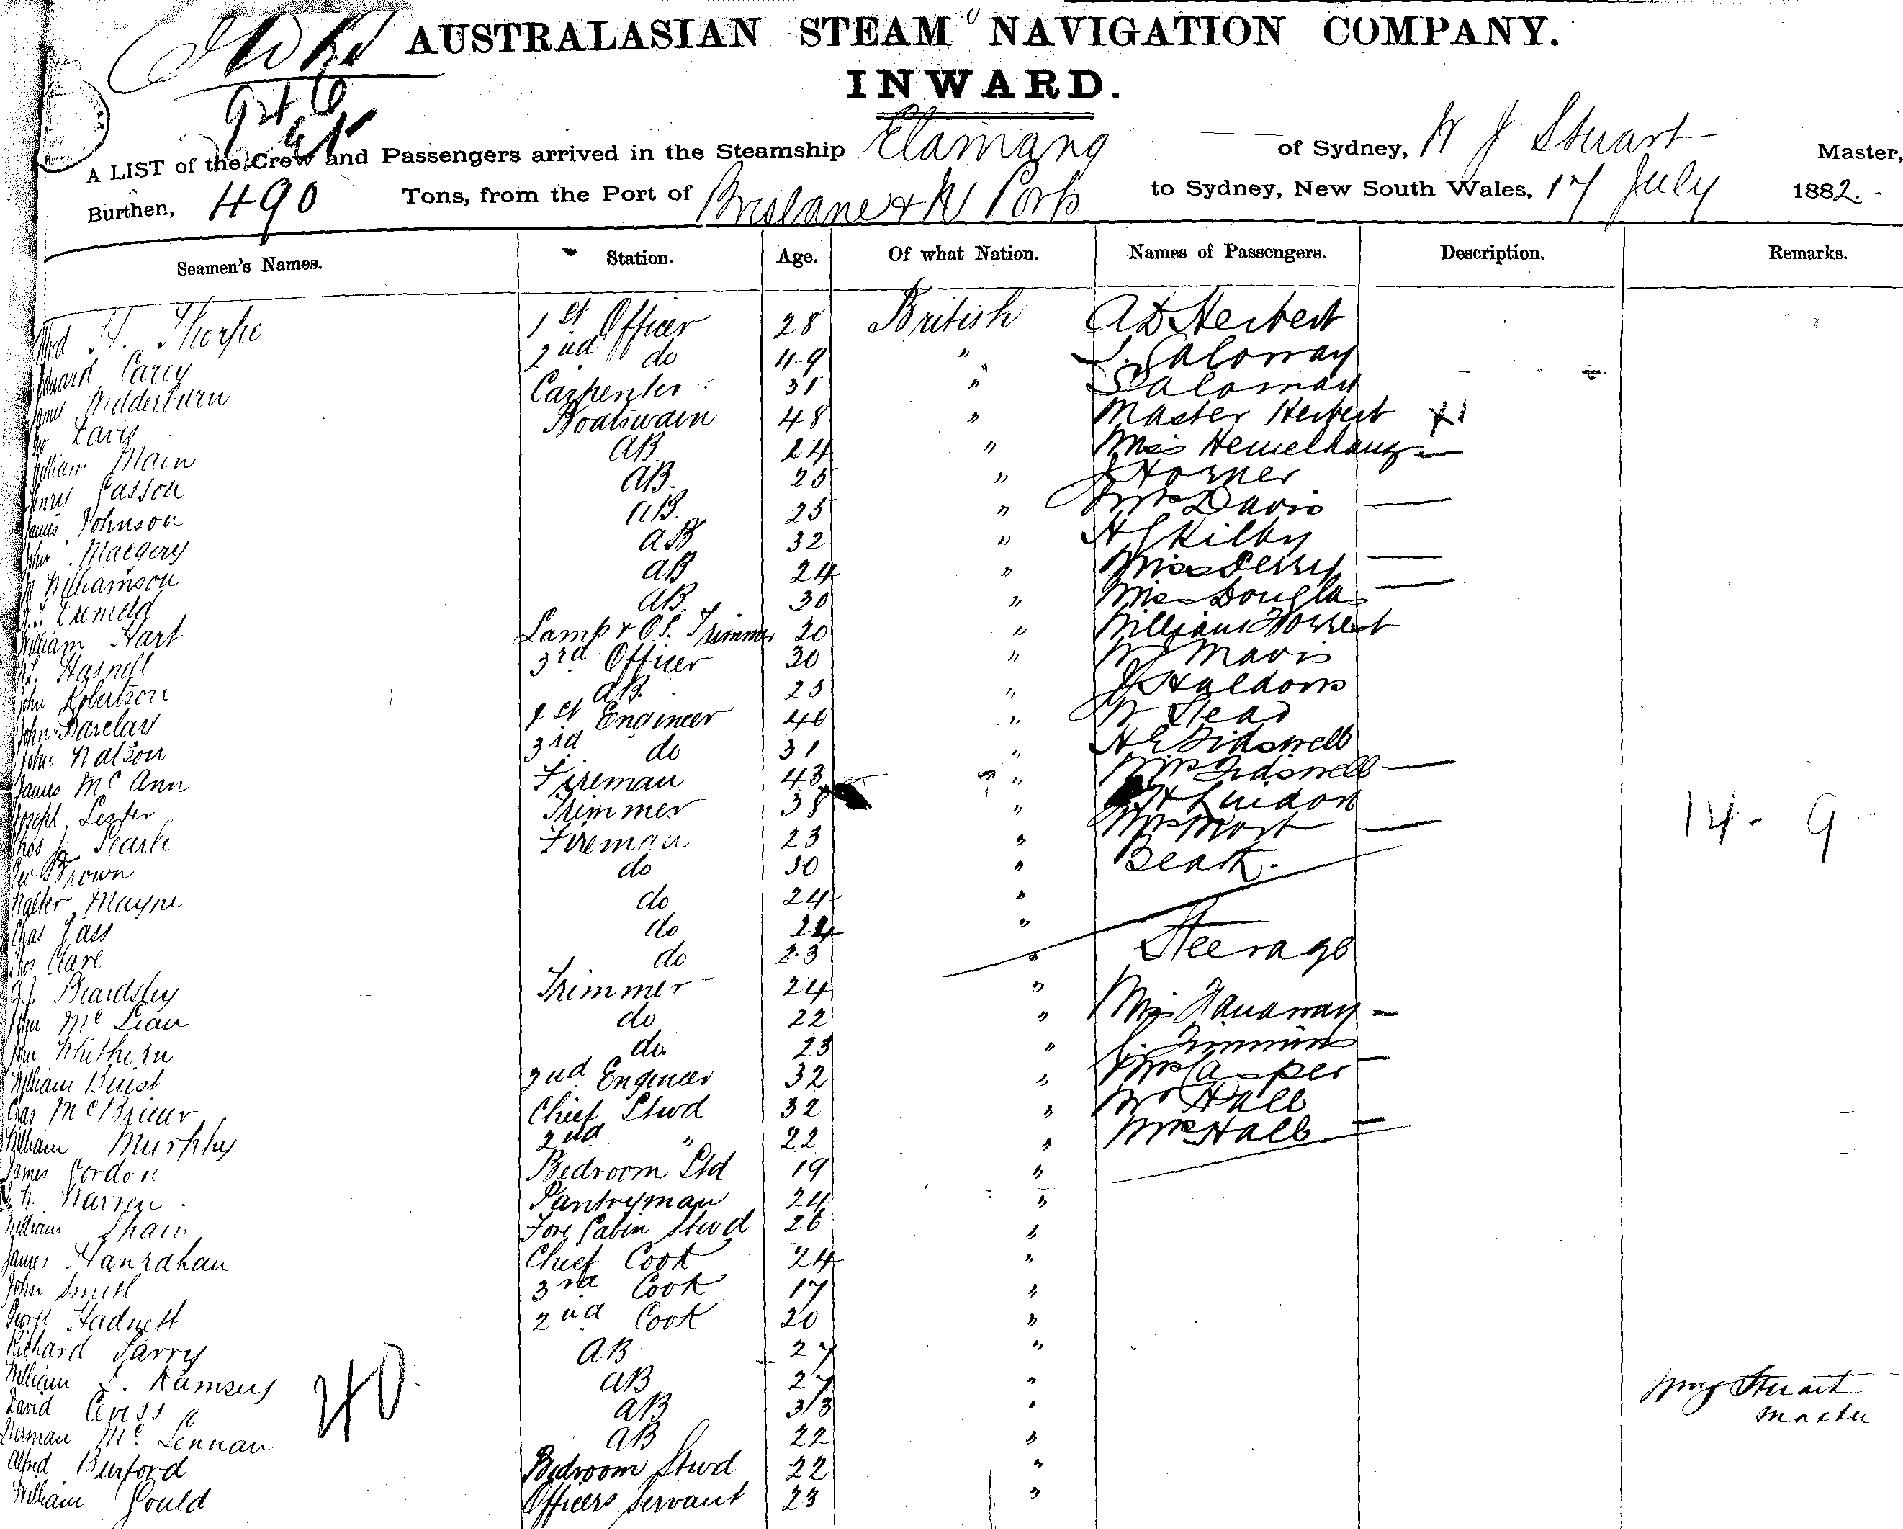 AUSTRALASIAN STEAM NAVIGATION COMPANY.
INWARD.
A LIST of the Crew and Passengers arrived in the Steamship Elamang of Sydney, W J Stuart Master,
Burthen, 490 Tons, from the Port of Brisbane & N Ports to Sydney, New South Wales, 17 July 1882.
Seamen's Names. Station. Age. Of what Nation. Names of Passengers. Description. Remarks.
H. Thorpe 1st Officer 28 British A D Herbert
Edward Carey 2nd do 49 " Saloway
James Wedderburn Carpenter 31 " Saloman
Davis Boatswain 48 " Master Herbert
William Main AB 24 " Miss
Casson AB. 25 " J Horner
James Johnson AB. 25 " Mrs Davis
John Macgery AB 32 " H G Kilby
Williamson AB 24 " Miss Perry
AB. 30 " Miss Douglas
William Hart Lamp & OS. Trimmer 20 " William Forrest
3rd Officer 30 " W Mavis
John Robertson AB. 25 " J Haldons
John Barclay 1st Engineer 46 " W Stead
John Watson 3rd do 31 " H E Tidswell
James Mc Ann Fireman 43 " Mrs Tidswell
Joseph Lester Trimmer 38 " H Lindon
Thos Searle Fireman 23 " Mrs Mort 14 - 9
Brown do 30 " Beak.
Walter Mayne do 24 "
Chas Cass do 24 " Steerage
Thos Clare do 23 "
Beardsley Trimmer 24 "
John Mc Lean do 22 " Miss Hanaway
John Withern do 23 " Timmins
William Buist 2nd Engineer 32 " Mrs Casper
Chas McBriear Chief Stwd 32 " Mr Hall
William Murphy 2nd " 22 " Mrs Hall
James Gordon Bedroom Std 19 "
Warren Pantryman 24 "
William Shaw Fore Cabin Stwd 26 "
James Hanrahan Chief Cook 24 "
John Smith 3rd Cook 17 "
George Hadnett 2nd Cook 20 "
Richard Parry AB 27 "
William J. Ramsey AB 27 "
David Cross AB 33 "
Norman Mc Lennan AB 22 "
Alfred Burford Bedroom Stwd 22 "
William Gould Officers Servant 23 "
40
Wm J Stuart
Master